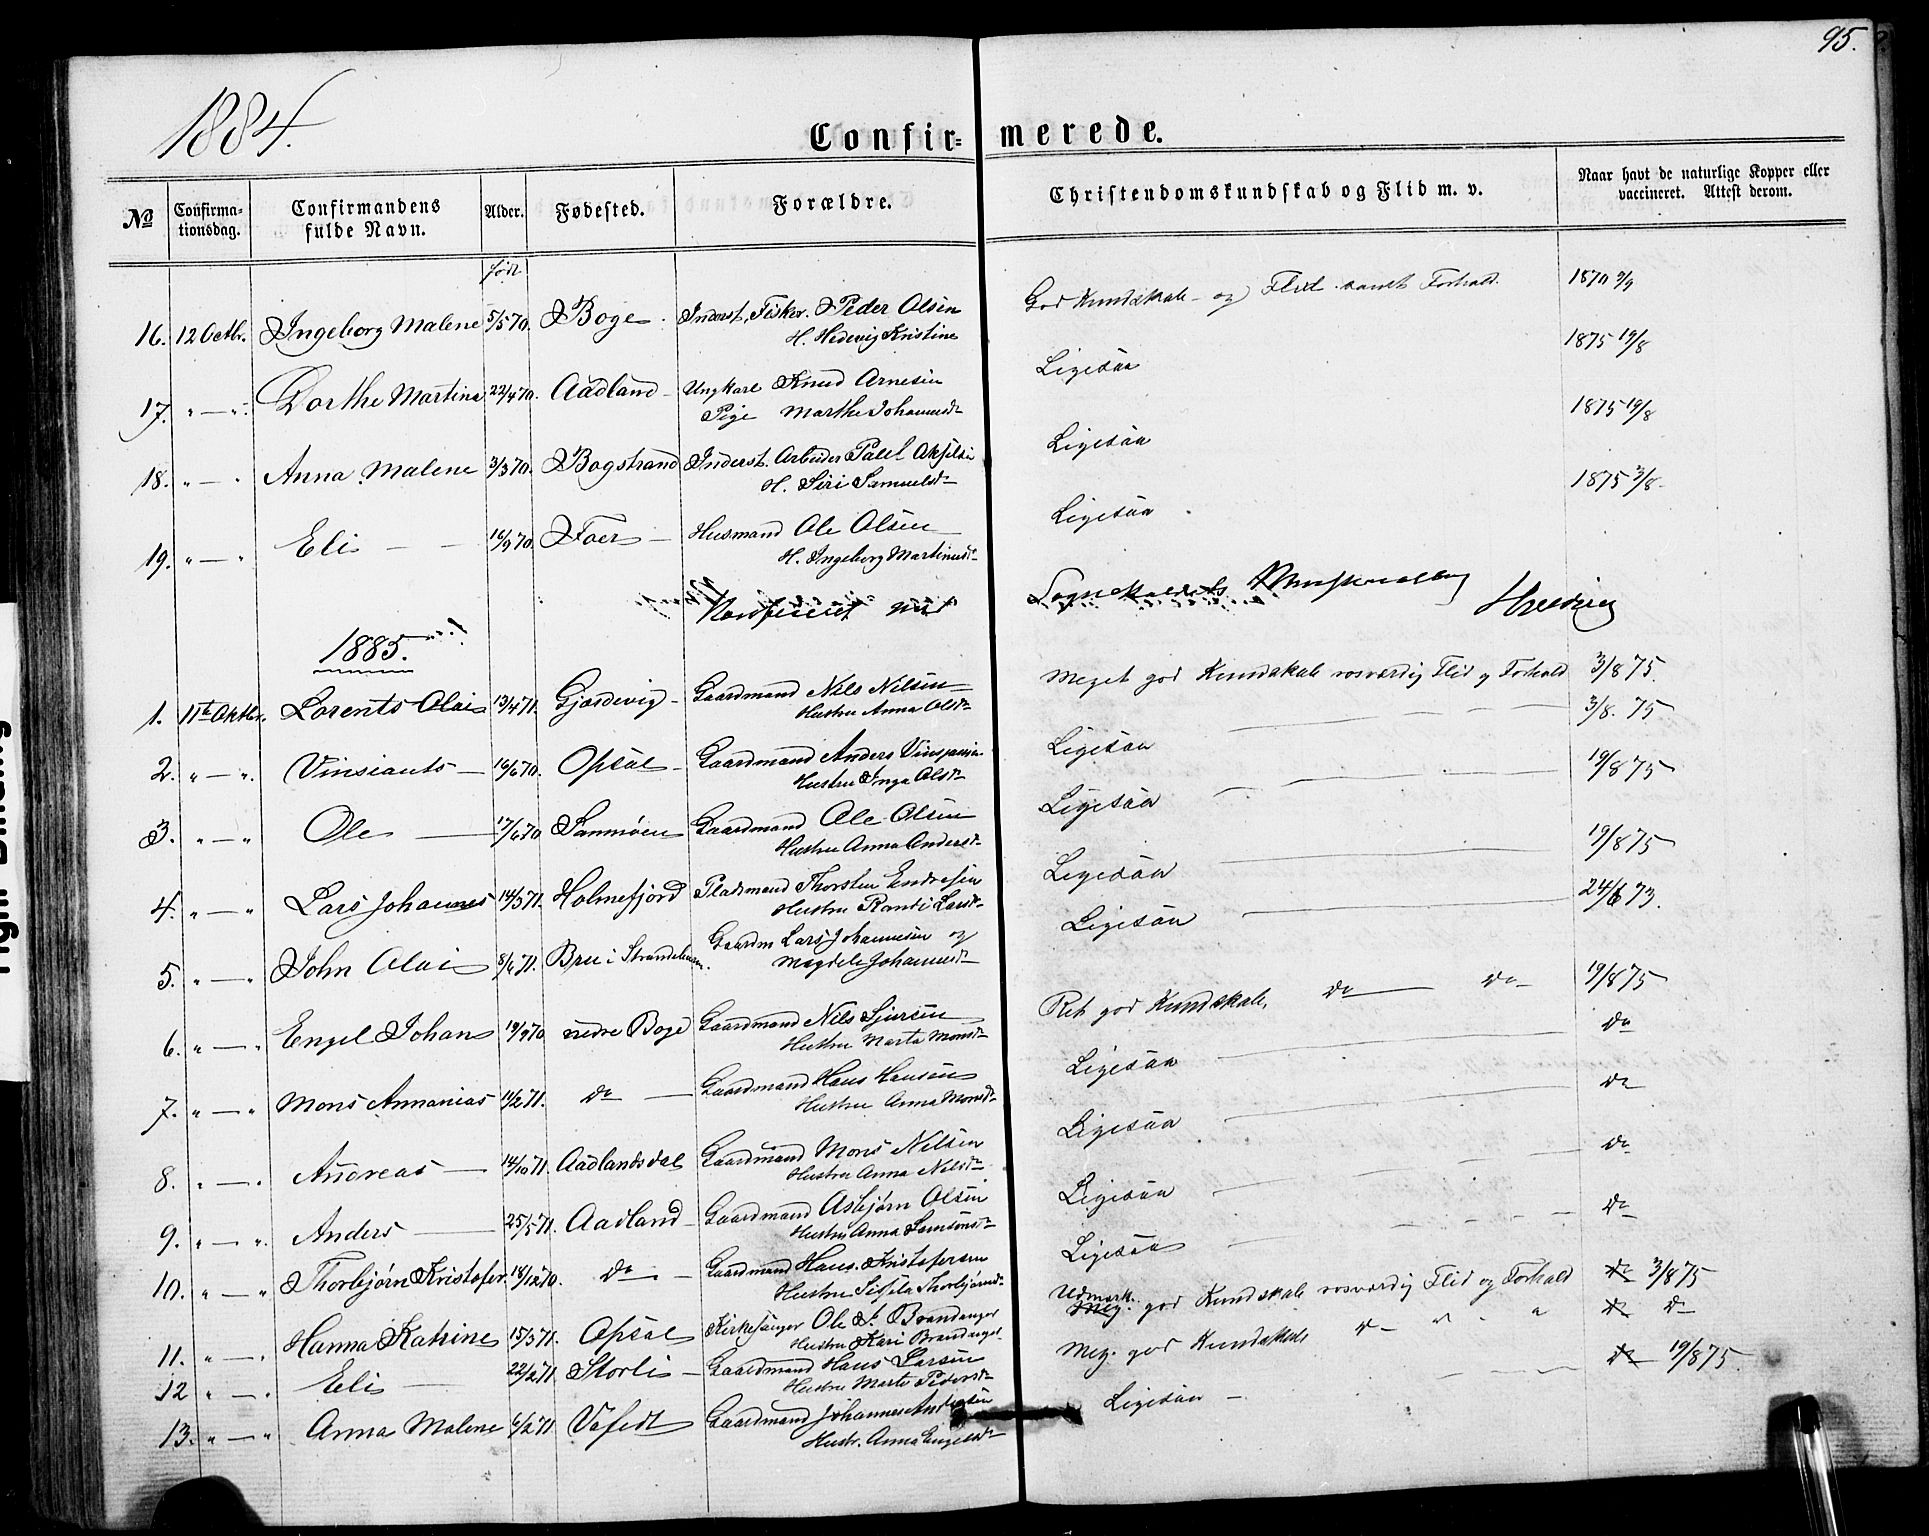 95.
1884.
Confir= merede.
No Confirma=tionsdag. Confirmandens fulde Navn. Alder. Fødested. Forældre. Christendomskundskab og Flid m. v. Naar havt de naturlige Kopper eller vaccineret. Attest derom.
født
16. 12 Octbr. Ingeborg Malene 5/5 70. Boge. Inderst, Fisker. Peder Olsen God Kundskab og Flid samt Forhold. 1870 9/9
H. Hedevig Kristine
17. " — " Dorthe Martina 22/4 70. Aadland — Ungkarl Knud Arnesen Ligesaa 1875 19/8
Pige Marthe Johannesdr
18. " — " Anna Malene 3/3 70. Bogstrand Inderst. Arbeider Paul Ligesaa 1875 19/8
H. Siri Samuelsdr
19. " — " Eli — — 16/9 70. Foer — Husmand Ole Olsen Ligesaa 1875 3/8
H. Ingeborg Martinusdr
Konfereret med Sognekaldets
1885.
1. 11te Oktbr. Lorents Olai 13/4 71. Gjerdevig — Gaardmand Nils Nilsen Meget god Kundskab rosværdig Flid og Forhold 3/8 75.
Hustru Anna Olsdr
2. " — " Vinsiants — 16/6 70. Opsal — Gaardmand Anders Ligesaa — — — 3/8. 75
Hustru Inga Olsdr
3. " — " Ole — 17/6 70 Sanmoen Gaardmand Ole Olsen Ligesaa — — — 19/8 75
Hustru Anna Andersdr
4. " — " Lars Johannes 14/5 71. Holmefjord Pladsmand Thorsten Endresen Ligesaa — 19/8 75
Hustru Randi Larsdr
5. " — " John Olai 8/6 71. Bru i Gaardm Lars Johannesen og Ligesaa — 24/6 73.
Magdela Johannesdr
6. " — " Engel Johan 19/9 70 nedre Boge Gaardmand Nils Sjursen Ret god Kundskab, do — do — 19/8 75
Hustru Marta Monsdr
7. " — " Mons Annanias 11/2 71. do — Gaardmand Hans Hansen Ligesaa — do
Hustru Anna Monsdr
8. " — " Andreas — 14/10 71. Aadlandsdal Gaardmand Mons Nilsen Ligesaa — do
Hustru Anna Nilsdr
9. " — " Anders — 25/5 71. Aadland — Gaardmand Asbjørn Olsen Ligesaa — do
Hustru Anna Samsonsdr
10. " — " Thorbjørn Kristofer 18/12 70. do — Gaardmand Hans Kristofersen Ligesaa — do
Hustru Sissela Thorbjørnsdr
11. " — " Hanna Katrine 15/3 71. Opsal Kirkesanger Ole Brandanger Udmærk. Meg. god Kundskab rosværdig Flid og Forhold do 3/8 75
Hustru Kari Brandanger
12 " — " Eli — 22/2 71 Storli — Gaardmand Hans Larsen Meg. god Kundskab do " " do do
Hustru Marta Pedersdr
13. " — " Anna Malene 6/2 71 Gaardmand Johannes Ligesaa — do 19/8 75.
Hustr. Anna Engelsdr